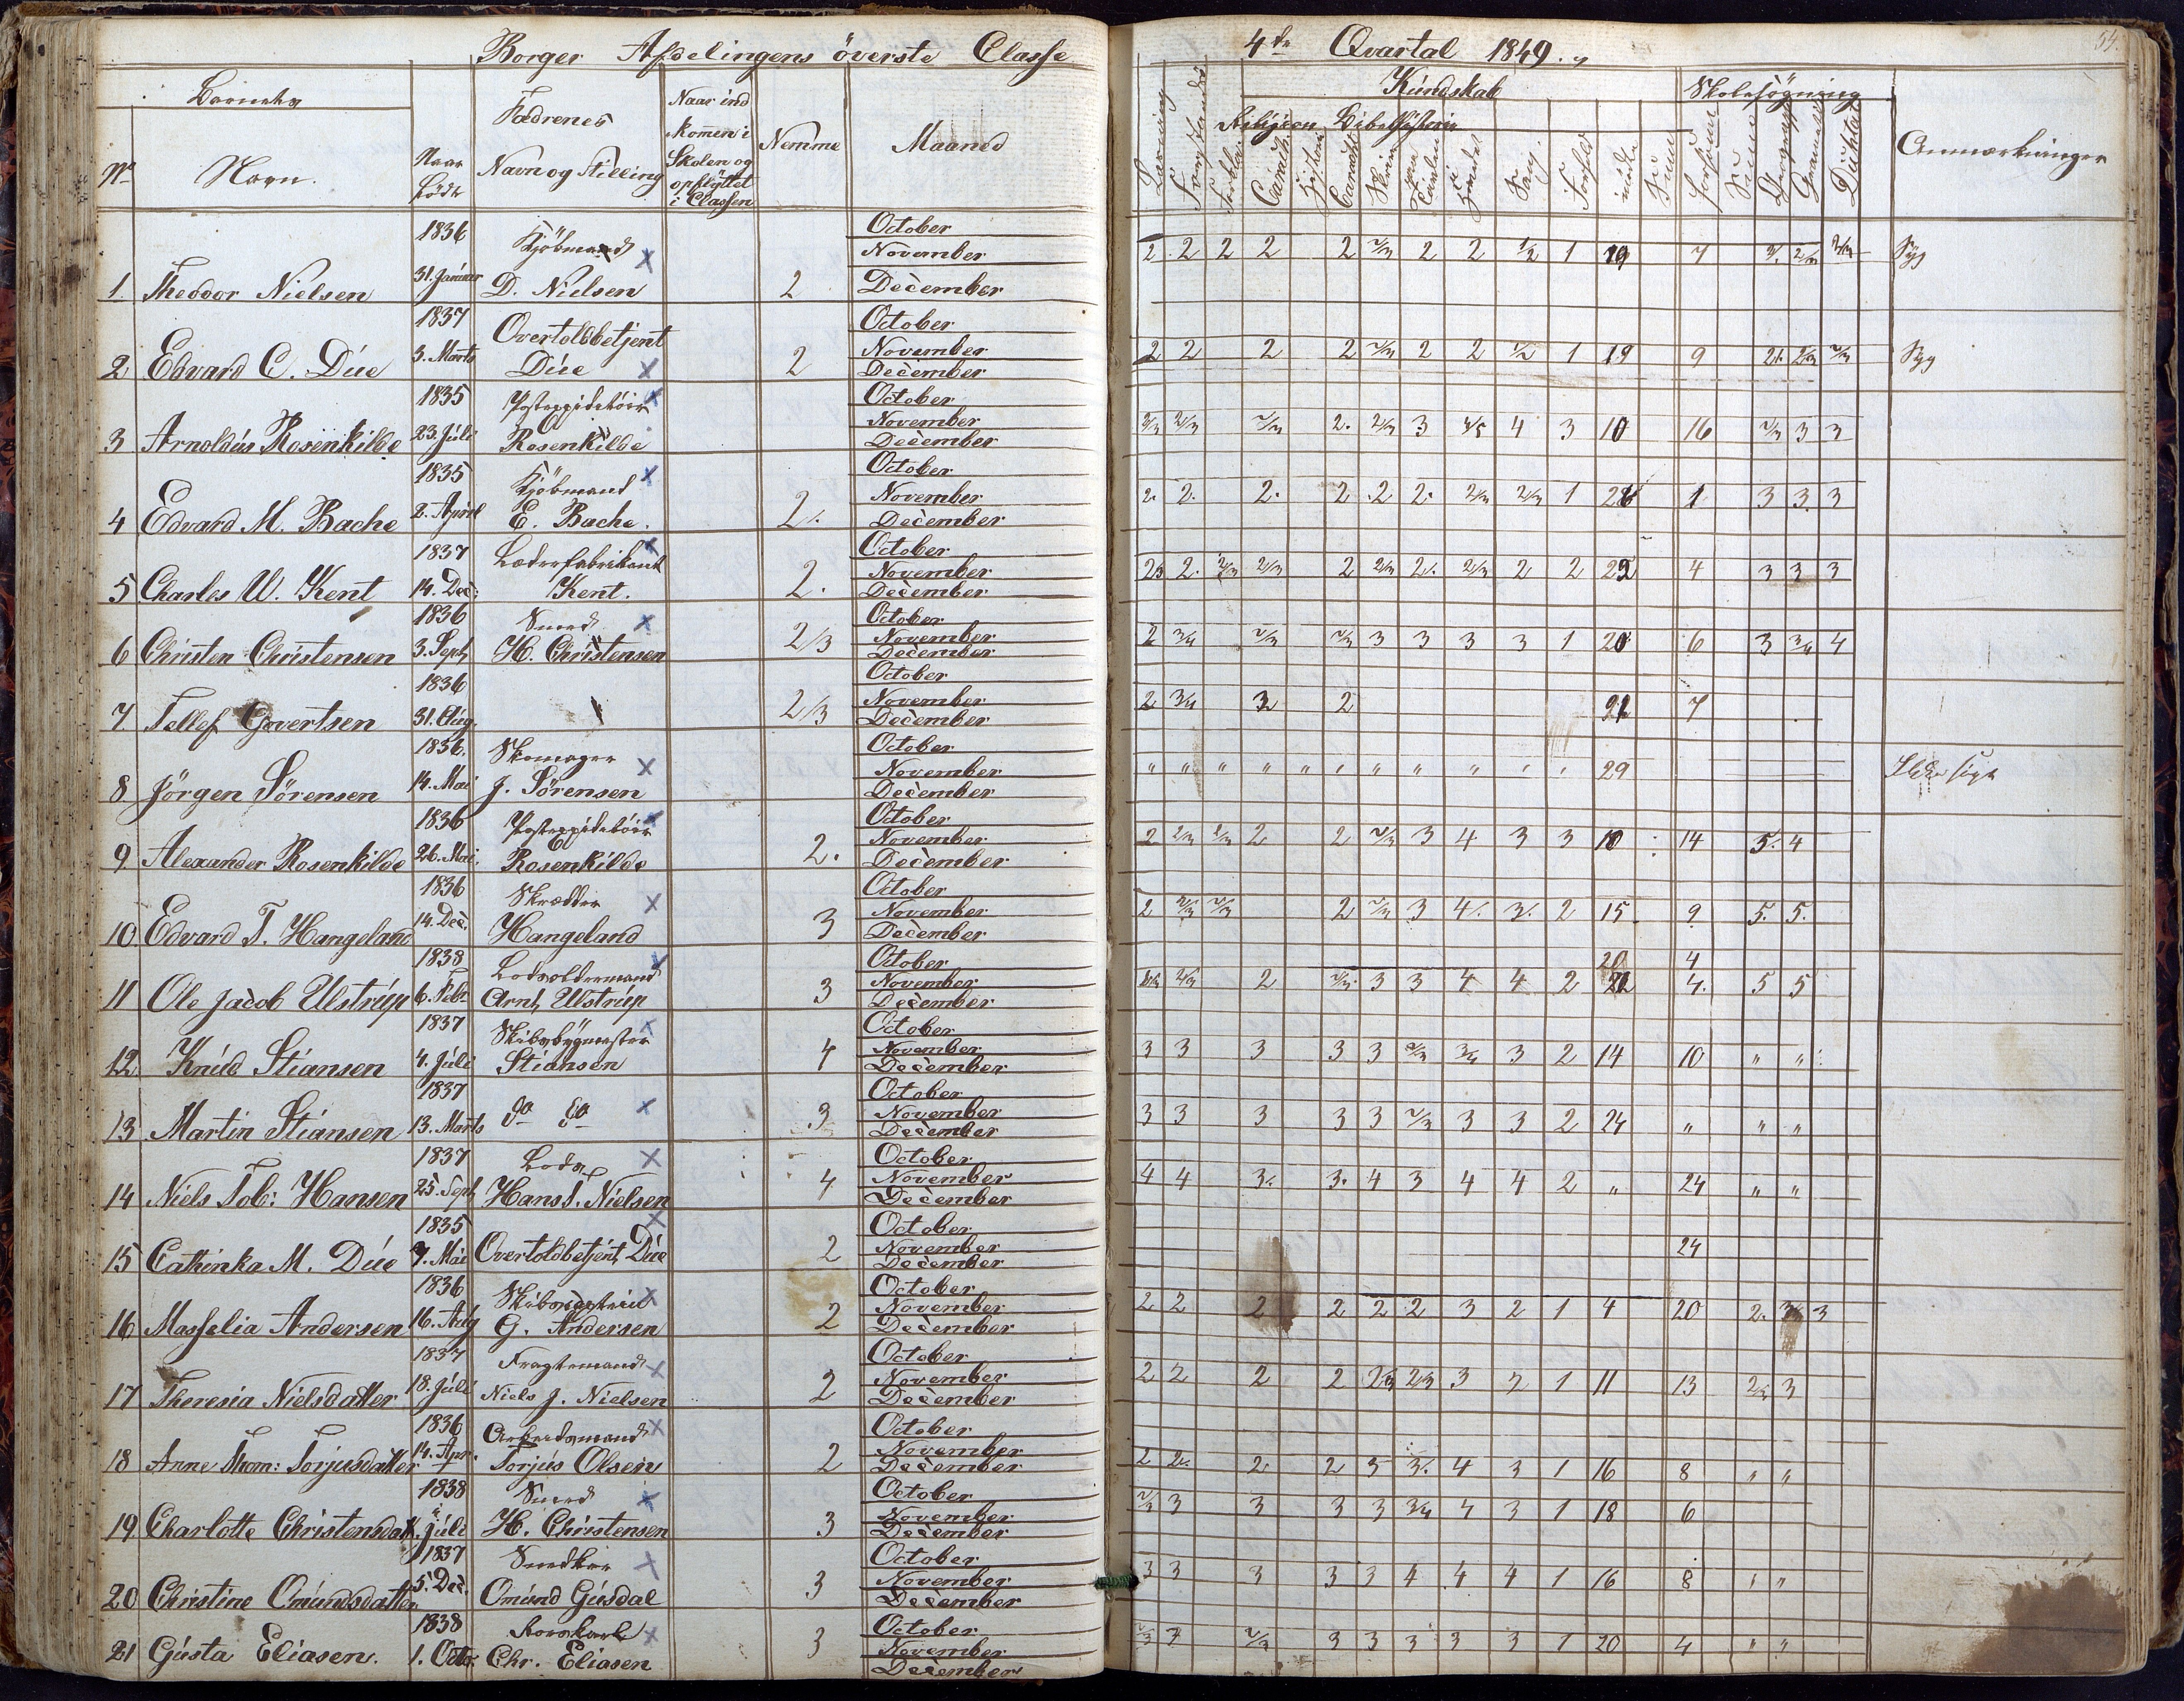 Borger Afdelingens överste Classe
4de Qvartal 1849.
54.
Barnets
Nº
Navn.
Naar Födt
Fædrenes
Navn og Stilling
Naar ind
kommen i
Skolen og
opflyttet
i Classen
Nemme
Maaned
Kundskab
Religion Bibelhistorie
Skolesögning
Anmærkninger
1836 Kjöbmand October
November 2 2 2 2 2 2/3 2 2 1/2 1 19 7 Syg
1. Theodor Nielsen 31. Januar D. Nielsen 2 December
1837 Overtoldbetjent October
3. Marts November 2 2 2 2 2/3 2 2 1/2 1 19 9 Syg
2 Edvard C. Düe Düe 2 December
1835 Postexpeditör October
23. Juli November 2/3 2/3 2. 2/3 3 4/5 4 3 10 16 2/3 3 3
3 Arnoldus Rosenkilde Rosenkilde December
1835 Kjöbmand October
November 2. 2. 2. 2 2 2. 2/3 2/3 1 1 3 3. 3
4 Edvard M. Bache 2. April E. Bache. 2. December
1837 Læderfabrikant October
November 2. 2/3 2/3 2 2/3 2. 2/3 2 2 4 3 3 3
5 Charles W. Kent 14. Dec: Kent. 2. December
1836 Smed October
November 2 3/4 2/3 2/3 3 3 3 3 1 20 6 3 3/4 4
6 Christen Christensen 3. Sept H. Christensen 2/3 December
1836 October
November 2 3/4 2 7
7. Tellef Govertsen 31. Aug. 2/3 December
1836. Skomager October
November " " " " " " " " " " " 29 Ikke sögt
8 Jörgen Sörensen 14. Mai J. Sörensen December
1836 Postexpeditör October
November 2 2/3 2/3 2 2 2/3 3 4 3 3 10 14 5. 4
9 Alexander Rosenkilde 26. Mai. Rosenkilde 2. December
1836 Skrædder October
14. Dec. November 2 2/3 2/3 2 2/3 3 4. 3. 2 15. 9 5. 5.
10 Edvard T. Hangeland Hangeland 3 December
1838 Lodsoldermand October 20 4
November 2/3 2 2/3 3 3 4 4 2 4. 5 5
11 Ole Jacob Ulstrüp 6. Febr Arnt Ulstrüp 3 December
1837 Skibsbygmester October
November 3 3 3 3 3 2/3 3/4 3 2 14 10 " "
12. Knüd Stiansen 4. Juli Stiansen 4 December
1837 October
November 3 3 3 3 3 2/3 3 3 2 24 " " "
13 Martin Stiansen 13. Marts do do 3 December
1837 Lods October
November 4 4 3. 3. 4 3 4 4 2 " 24 " "
14 Niels Tob: Hansen 25. Sept Hans T. Nielsen 4 December
1835 October
November 24
15 Cathinka M. Düe 7. Mai Overtoldbetjent Düe 2 December
1836 October
November 2 2 2 2 2 2 3 2 1 4 20 2. 3/4 3
16 Masselia Andersen 16. Aug G. Andersen 2 December
1837 Fragtemand October
18. Juli November 2 2 2 2 2/3 2/3 3 2 1 11 13 2/3 3
17 Theresia Nielsdatter Niels J. Nielsen 2 December
1836 Arbeidsmand October
14. Apr. November 2 2. 2 2 3 3. 4 3 1 16 8 " "
18 Anne Thom: Torjusdatter Torjus Olsen 2 December
1838 Smed October
November 2/3 3 3 3 3 3/4 4 3 1 18 6
19 Charlotte Christensdatt. Juli H. Christensen 3 December
1837 Snedker October
5. Dec. November 3 3 3 3 3 4 4 4 1 16 8 " "
20 Christine Omundsdatter Omünd Güsdal 3 December
1838 October
November 2/3 3 2/3 3 3 3 3 3 1 20 4 " "
21 Güsta Eliasen. 1. Octo. Chr. Eliasen 3 December